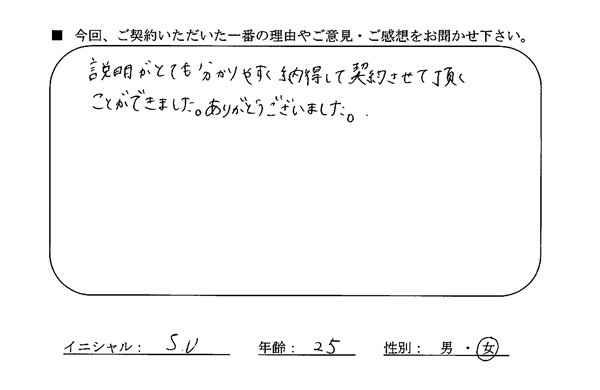 ■ 今回、ご契約いただいた一番の理由やご意見・ご感想をお聞かせ下さい。
説明がとても分かりやすく納得して契約させて頂く
ことができました。ありがとうございました。
イニシャル： S.U 年齢： 25 性別： 男 ・ 女